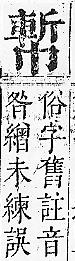 俗字舊註音
昝繒未練誤